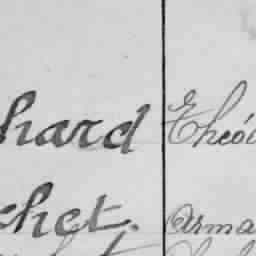 hard Théo
chet. Arma